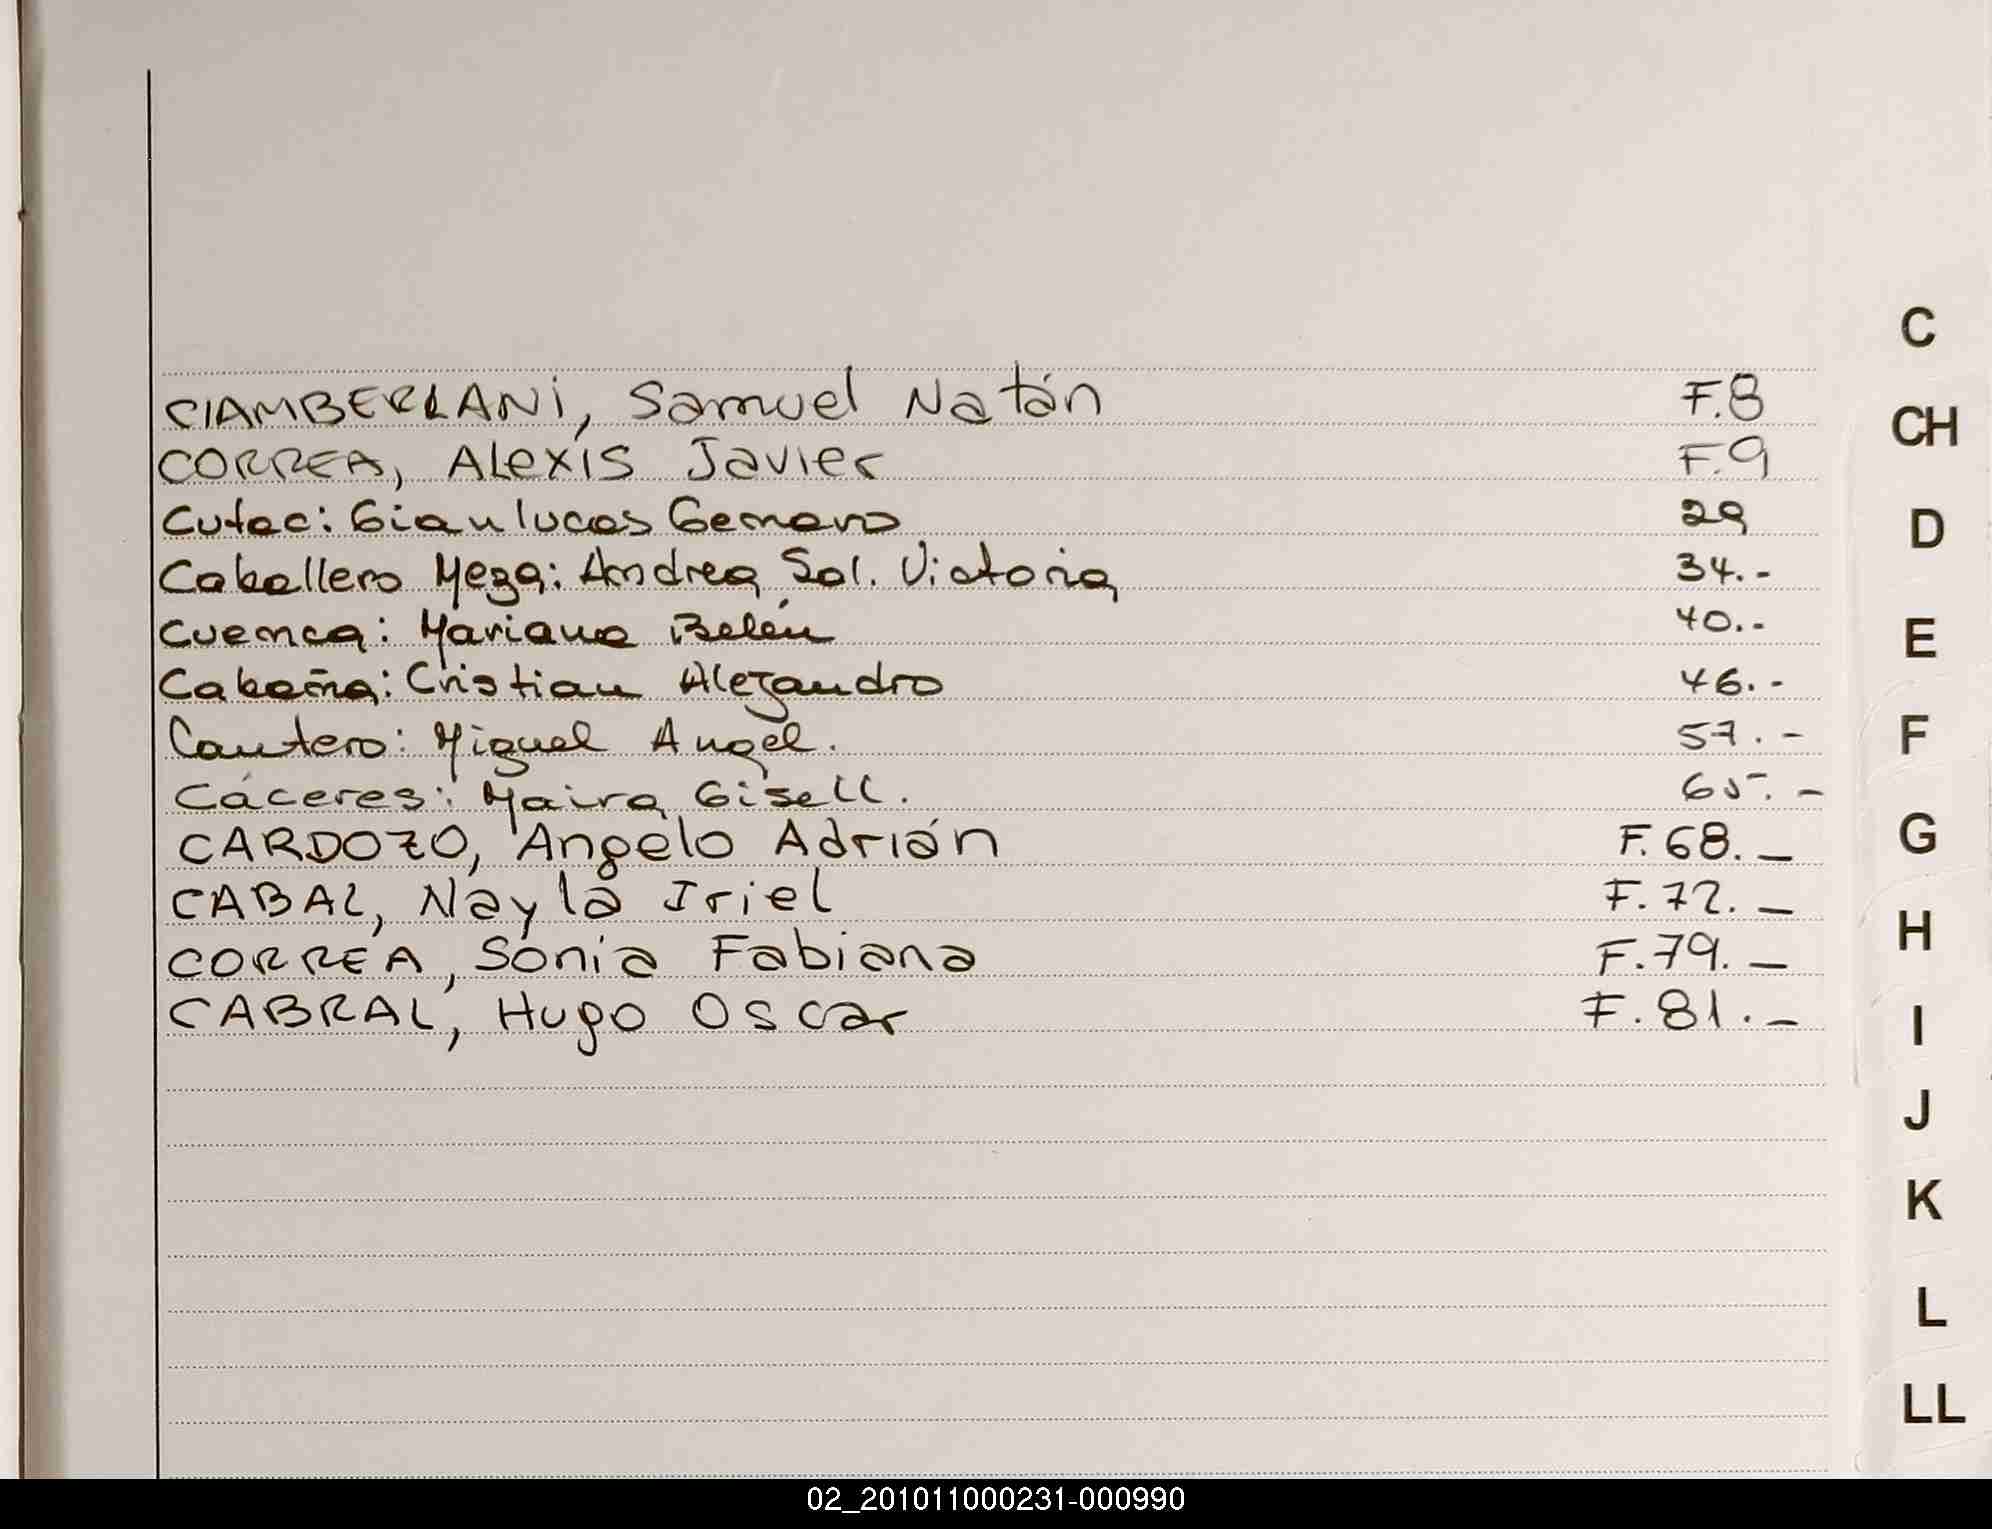 CIAMBERLANI, Samuel Natán F.8
CORREA, Alexis Javier F.9
Cutec: Gianlucas Genaro 29
Caballero Meza: Andrea Sol. Victoria 34.-
Cuenca: Mariana Belén 40.-
Cabaña: Cristian Alejandro 46.-
Cantero: Miguel Angel. 57.-
Cáceres: Maira Gisell. 65.-
CARDOZO, Angelo Adrián F.68.-
CABAL, Nayla Iriel F.72.-
CORREA, Sonia Fabiana F.79.-
CABRAL, Hugo Oscar F.81.-
C
CH
D
E
F
G
H
I
J
K
L
LL
02_201011000231-000990